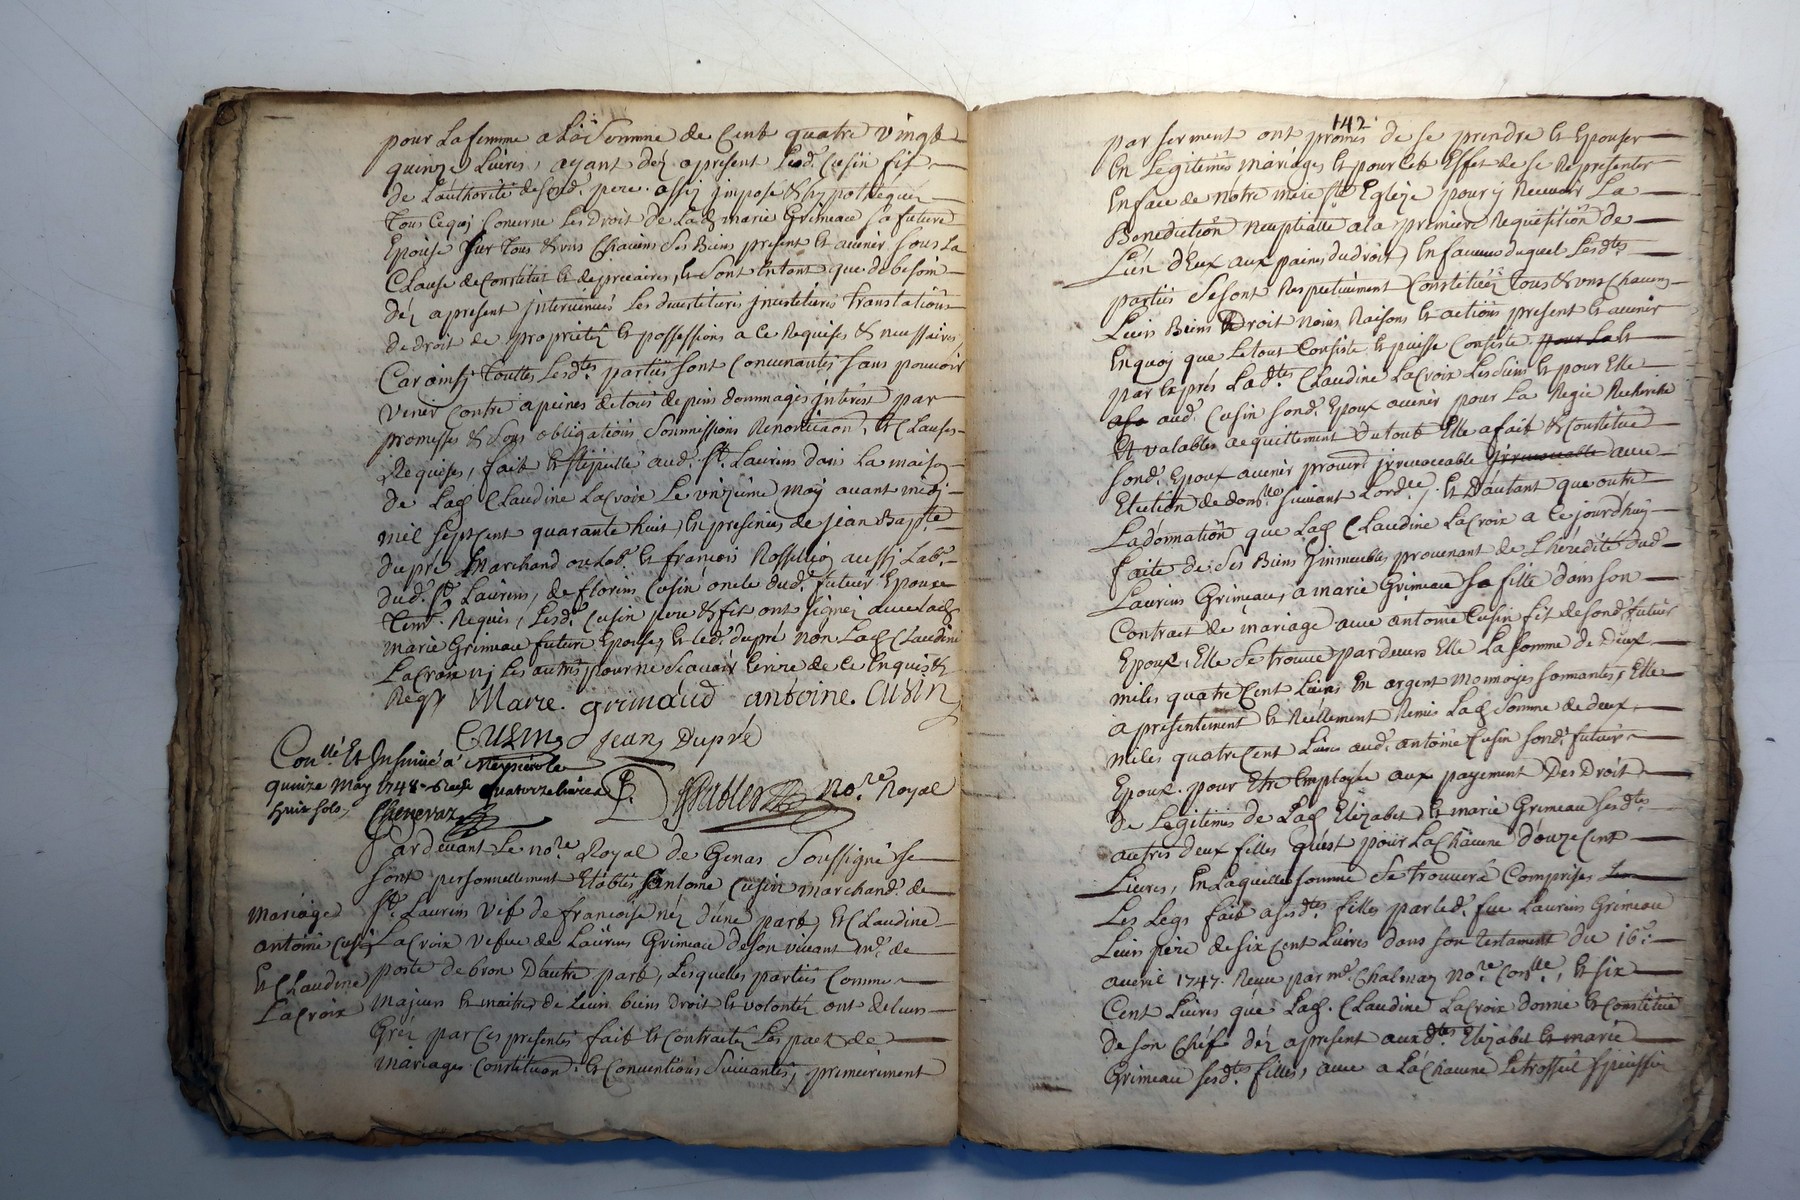 pour la femme a la Somme de Cent quatre vingt
quinze Livres, ayant dez apresent Led. Cusin fis
de L'authorité desond. pere. assez jmposé & hypothequéz
Tous Cequj Concerne Les droit de Lad marie Grimeau Sa future
Epouse Sur tous & uns Chacuns Ses Biens present Et avenir Sous La
Clause de Constitut Et de precaires, Et Sont Entant que de besoin
déz apresent jntervenues Les devestitures jnvestitures translations
de droit de proprietéz Et possessions a Ce Requises & necessaires
Car ainsj Touttes Lesdtes. parties sont Convenantes Sans pouvoir
Venir Contre apeines de tous depens dommages jnterest par
promesses & Sous obligations Soumissions Renontiaon. Et Clauses
Requises, fait Et Stipullé aud. St. Laurens dans La maison
de Lad Claudine Lacroix Le unzieme May avant midj
mil Sept Cent quarante huit, En presences de jean Bapte
dupré Marchand ou Lab. Et françois Rosseillon aussj Lab.
dud. St. Laurens, de florin Cusin oncle dud. futur Epoux
tem. Requis, Lesd. Cusin pere & fis ont signez avec Lad
marie Grimeau future Epouse, Et led. dupré non Lad Claudine
Lacroix nj Les autres pour ne Scavoir Ecrire de Ce Enquis &
Reqs Marie. grimaud antoine. CUSIN
CUSIN Jean Dupré
Conllé Et Insinué a Meyzieu le
quinze May 1748. Reçu quatorze livres
huit sols,
No.re Royal
Pardevant Le no.re Royal de Genas Soussigné Se
Sont personnellement Etablis Antoine Cusin marchand. de
Mariage d St. Laurens Vef de francoise néz d'une part, Et Claudine
antoine Cusin Lacroix Vefve de Laurens Grimeau de Son vivant me. de
Et Claudine poste de bron D'autre part, Lesquelles parties Comme
Lacroix majeurs Et maitre de Leurs biens droit Et volontéz ont de Leurs
Gréz par Ces presentes fait Et Contractéz Les pact de
Mariages Constitution. Et Conventions Suivantes, premierement
142
par Serment ont promis de Se prendre Et Epouser
En Legitimes mariages Et pour Cet Effet de Se Representer
En face de Notre mere Ste Eglize pour y Recevoir La
Benediction Neuptialle a la premiere Requesition de
L'un d'Eux aux paines du droit, En faveur duquel Lesdtes
parties Se sont Respectivement Constituéz tous & uns Chacuns
Leurs Biens & Droit Noms Raisons Et actions present Et avenir
En quoj que Le tout Consiste Et puisse Consister pour La Et
par Exprés Ladte. Claudine Lacroix Les Siens Et pour Elle
aud. Cusin Sond. Epoux avenir pour La Regie Recherche
Et valables acquittement Du tout Elle a fait & Constitué
Sond. Epoux avenir procurr. jrrevocable jrrevocable avec
Election de domlle Suivant Lordce., Et D'autant que outre
La donnation que Lad Claudine Lacroix a Ce jourd'huy
faite de Ses Biens jmmeubles provenant de L'hérédité dud
Laurens Grimeau, a marie Grimeau Sa fille dans Son
Contract de mariage avec antoine Cusin fis de Sond. futur
Epoux, Elle Se trouve pardevers Elle La Somme de Deux
miles quatre Cent Livres En argent Monnoyes Sonnantes, Elle
a presentement Et Reellement Remis Lad Somme de deux
miles quatre Cent Livres aud. antoine Cusin Sond. futur
Epoux. pour Etre Employée aux payement Des Droit
De Legitimes de Lad Elizabet & marie Grimeau Sesdtes
autres deux filles qu'est pour La Chacune Douze Cent
Livres, En Laquelle Somme Se trouvera Comprises
Les Legs fait a Sesdtes. filles par led. feu Laurens Grimeau
Leur pere de Six Cent Livres dans son testament du 16e.
avril 1747. Reçu par me. Chalmaz No.re Conlle, Et Six
Cent Livres que Lad. Claudine Lacroix donne Et Constitue
de Son Chef déz apresent auxdtes Elizabet Et marie
Grimeau Sesdtes filles, avec a La Chacune Le trosseil